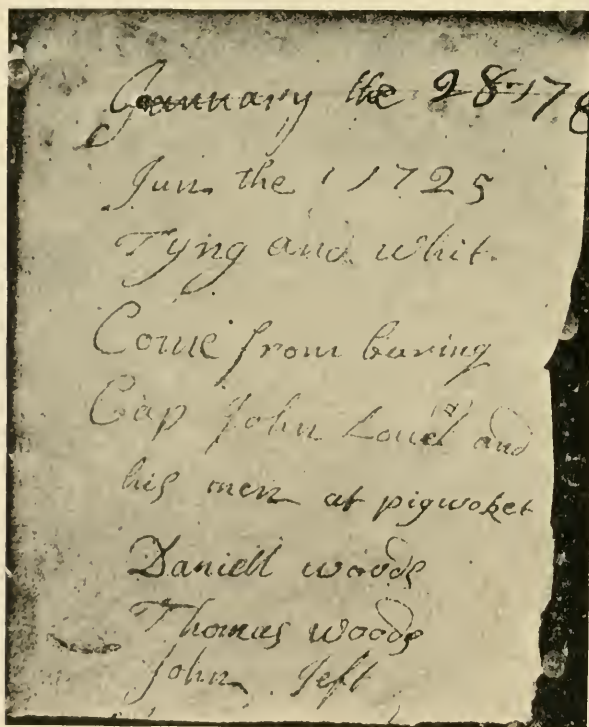 January the 28 178
Jun the 1 1725
Tyng and whit
Come from buring
Cap John Louel and
his men at pigwoket
Daniell woods
Thomas woods
John Jeft